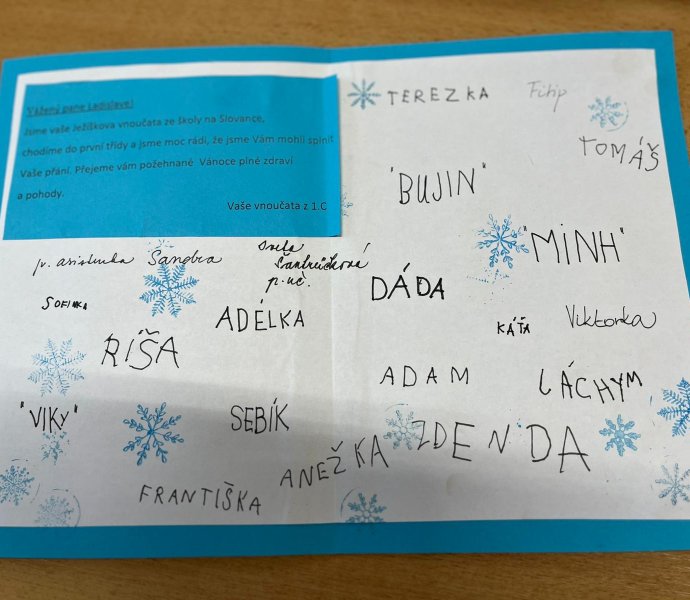 Vážený pane Ladislave!
Jsme vaše Ježíškova vnoučata ze školy na Slovance,
chodíme do první třídy a jsme moc rádi, že jsme Vám mohli splnit
Vaše přání. Přejeme vám požehnané Vánoce plné zdraví
a pohody.
Vaše vnoučata z 1.C
p. asistentka Sandra
Šantrůčková
p. uč.
SOFINKA
ADÉLKA
RÍŠA
"VIKY"
SEBÍK
FRANTIŠKA
TEREZKA
Filip
TOMÁŠ
"BUJIN"
"MINH"
DÁĎA
KÁŤA
Viktorka
ADAM
LÁCHYM
ZDENDA
ANEŽKA